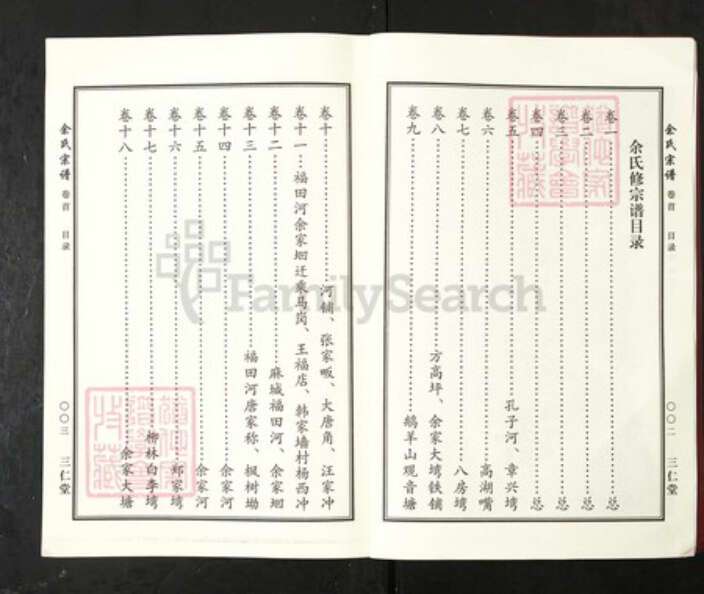 余氏宗谱 卷首 目录 〇〇二 三仁堂
余氏修宗谱目录
卷一……总
卷二……总
卷三……总
卷四……总
卷五……孔子河、章兴塆
卷六……高湖嘴
卷七……八房塆
卷八……方高坪、余家大塆铁铺
卷九……鹅羊山观音塘
卷十……河铺、张家畈、大唐角、汪家冲
卷十一……福田河余家垇迁乘马岗、王福店、韩家墙村杨西冲
卷十二……麻城福田河、余家垇
卷十三……福田河唐家称、枫树坳
卷十四……余家河
卷十五……余家河
卷十六……郑家塆
卷十七……柳林白李塆
卷十八……余家大塘
余氏宗谱 卷首 目录 〇〇三 三仁堂
FamilySearch